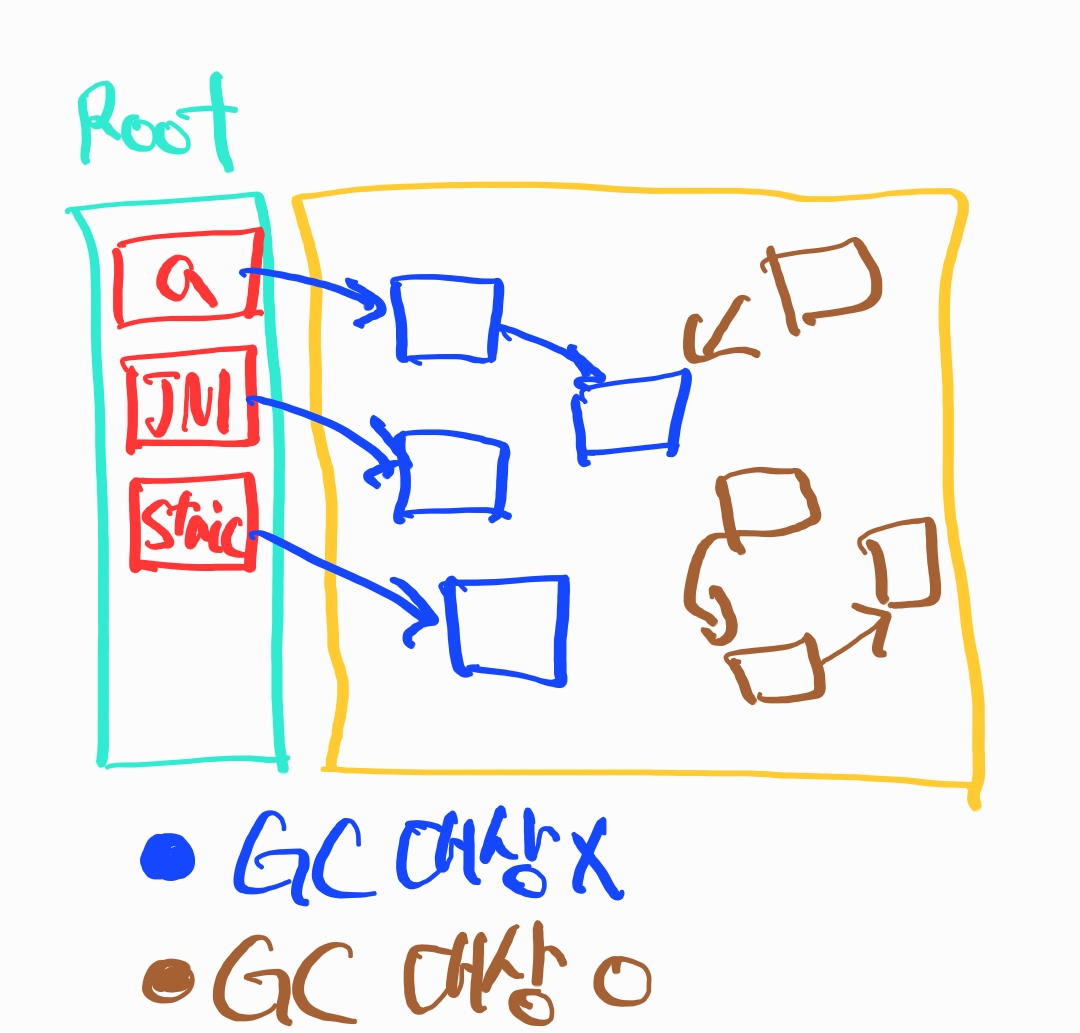 Root
a
JNI
Staic
GC 대상 X
GC 대상 O